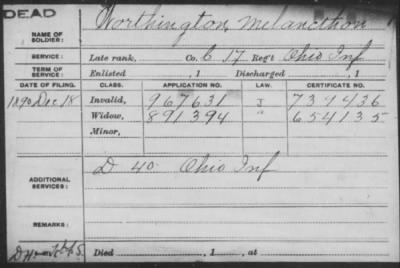 DEAD
NAME OF SOLDIER: Worthington, Melancthon
SERVICE: Late rank, Co. C 17 Reg't Ohio Inf
TERM OF SERVICE: Enlisted , 1 Discharged , 1
DATE OF FILING. CLASS. APPLICATION NO. LAW. CERTIFICATE NO.
1890 Dec 18 Invalid, 967631 J 739436
Widow, 891394 " 654135
Minor,
ADDITIONAL SERVICES: D 40 Ohio Inf
REMARKS:
Died , 1 , at